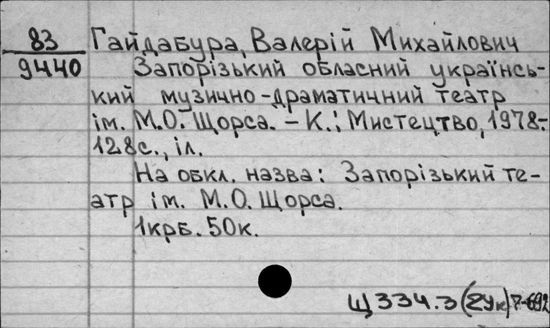 83
9440
Гайдабура, Валерій Михайлович
Запорізький обласний українсь-
кий музично-драматичний театр
ім. М.О. Щорса. – К.: Мистецтво, 1978.-
128с., іл.
На обкл. назва: Запорізький те-
атр ім. М.О. Щорса.
1крб. 50к.
Щ334.3(2Ук)7-692